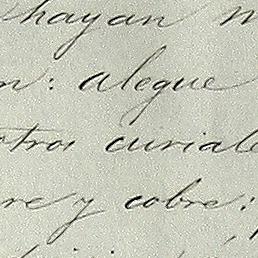 hayan
n: alegue
otros curiale
re y cobre: